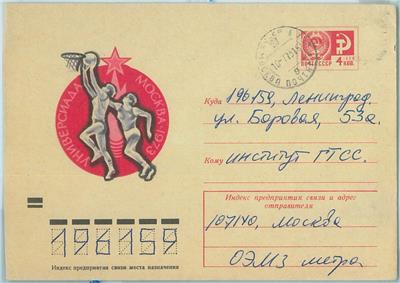 УНИВЕРСИАДА
МОСКВА·1973
ПОЧТА СССР
4 коп.
Куда 196159, Ленинград.
ул. Боровая, 53а.
Кому институт ГТСС.
Индекс предприятия связи и адрес
отправителя
107140, Москва
ОЭМЗ метра
196159
Индекс предприятия связи места назначения